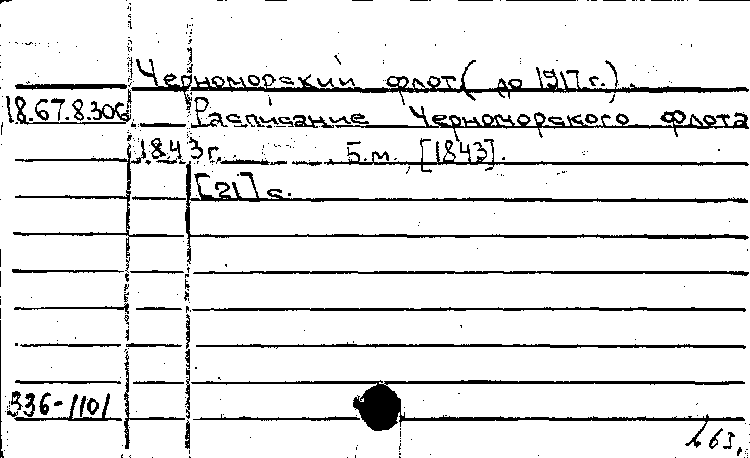 Черноморский флот (до 1917 г.).
18.67.8.306 Расписание Черноморского флота
1843 г. Б.м., [1843].
[21] с.
336-1101